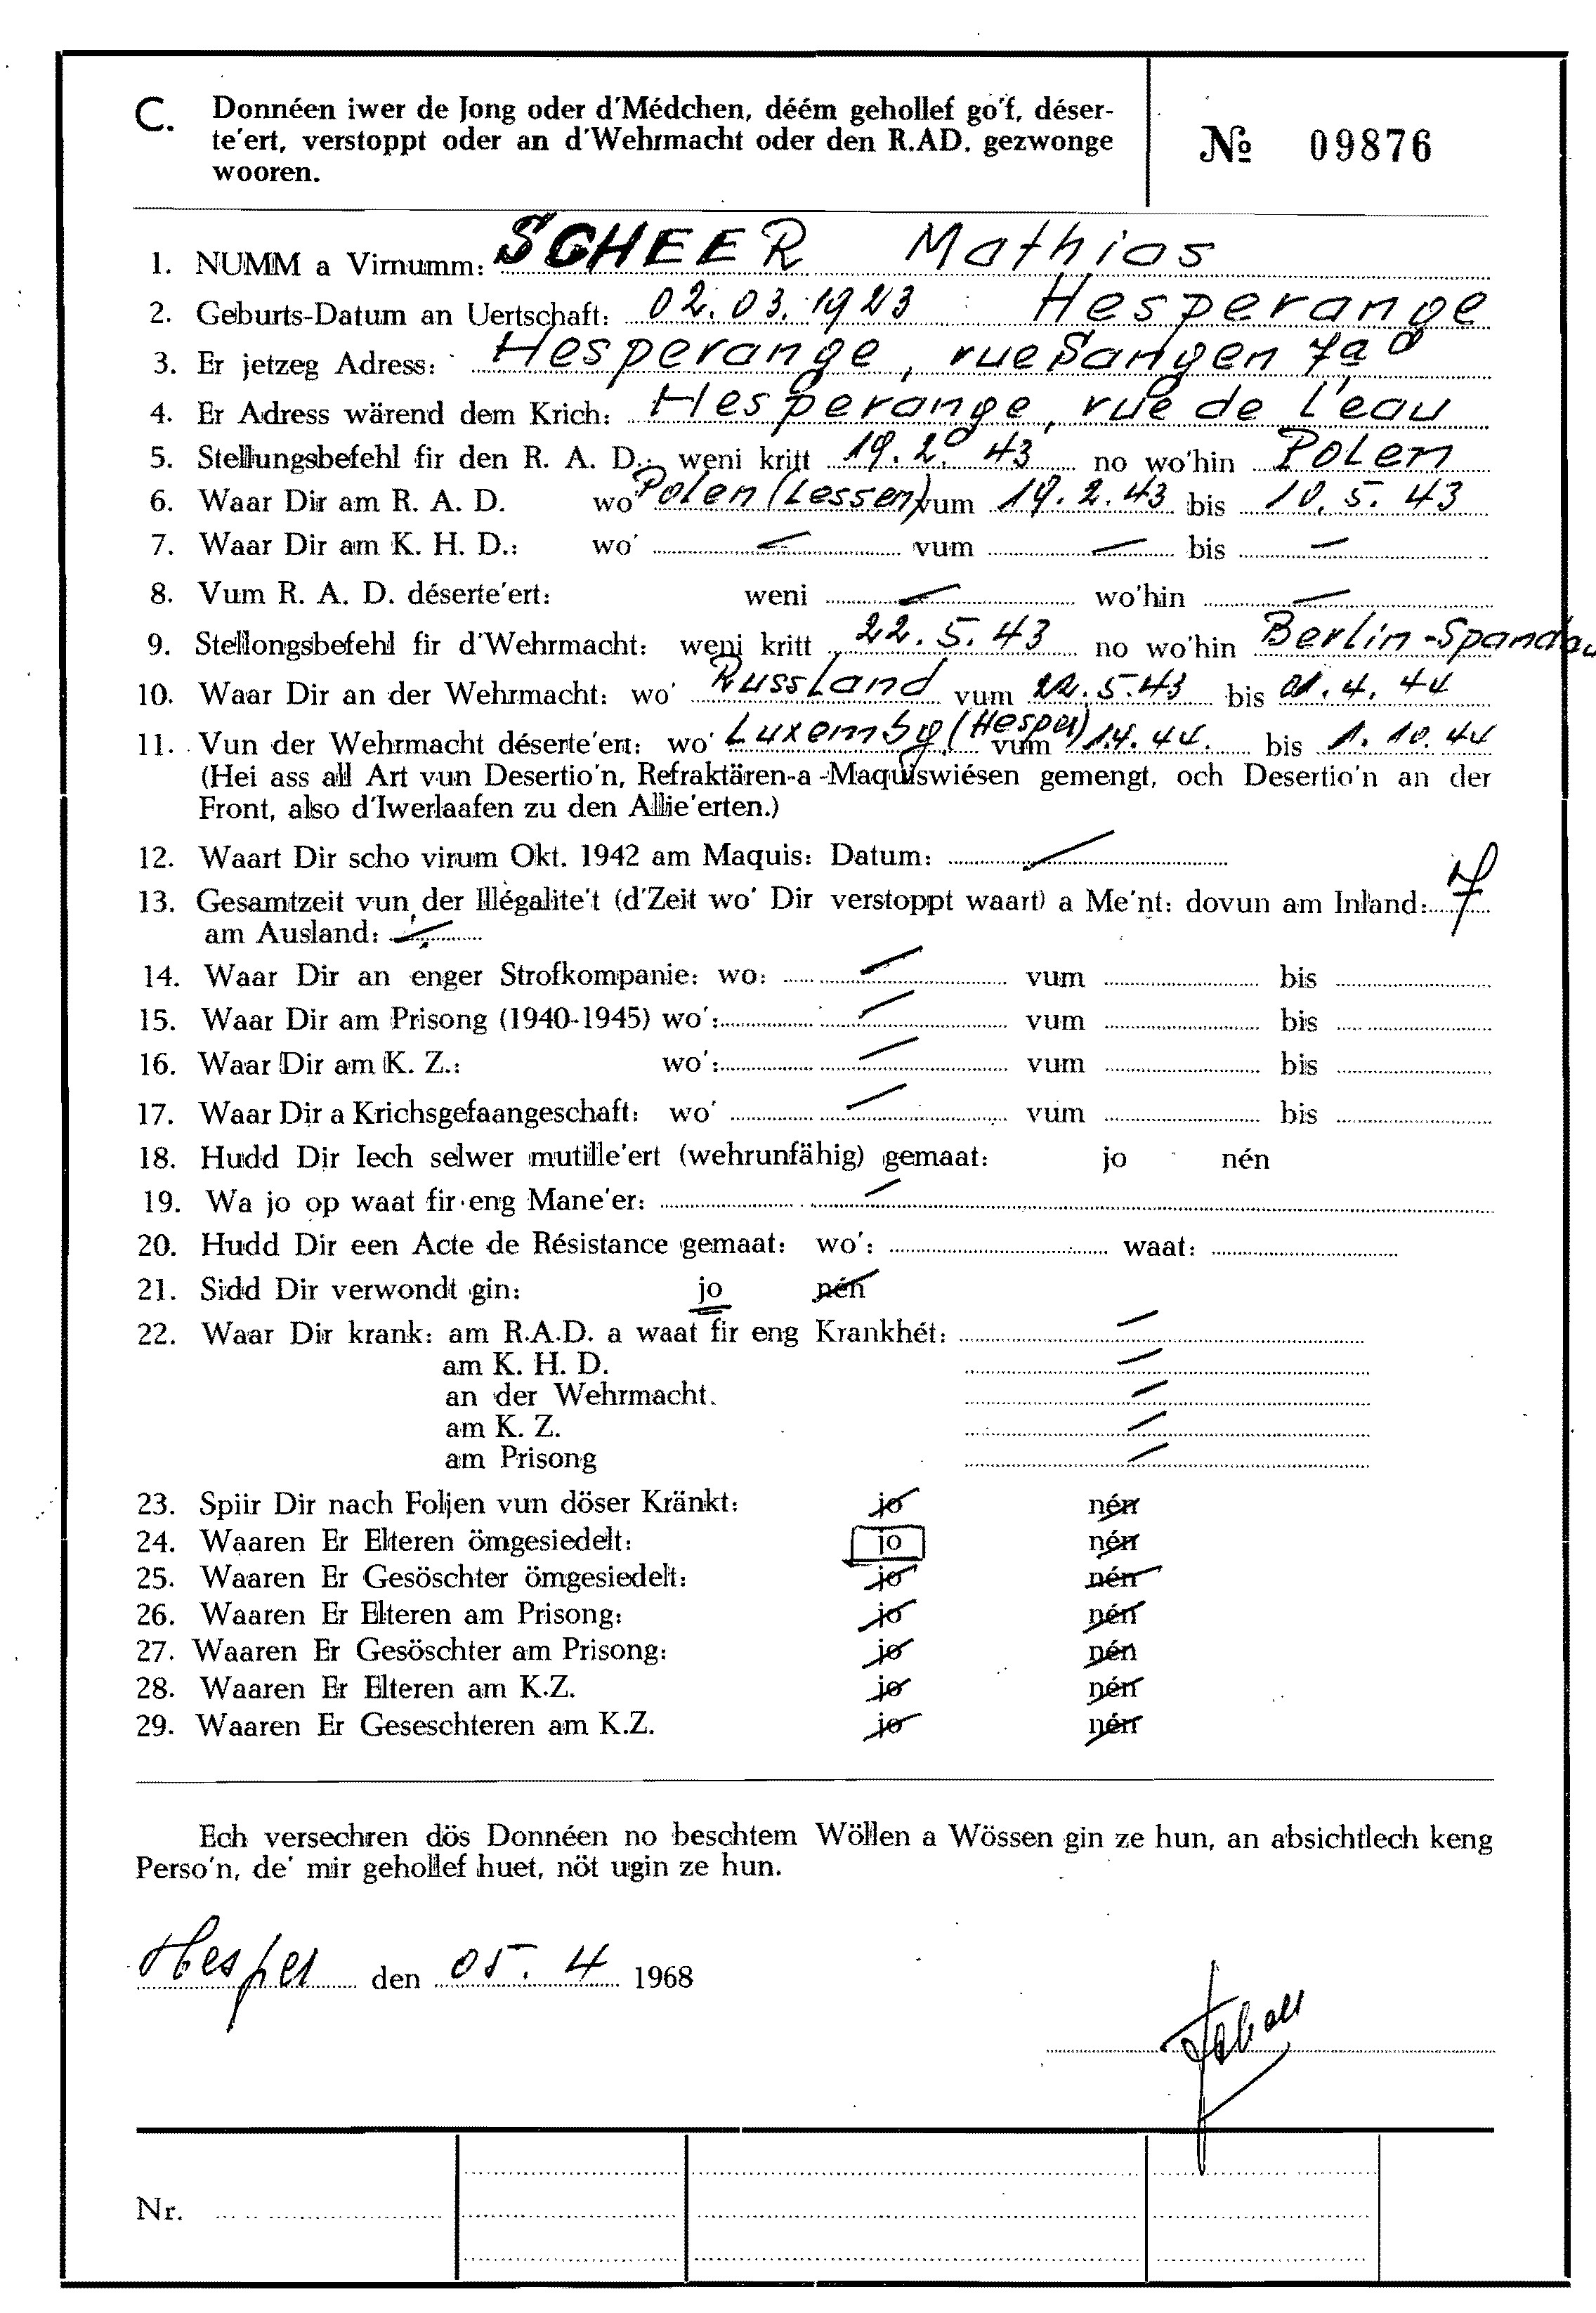 C. Donnéen iwer de Jong oder d'Médchen, déém gehollef go'f, déser-
te'ert, verstoppt oder an d'Wehrmacht oder den R.AD. gezwonge
wooren.
№ 09876
1. NUMM a Virnumm: SCHEER Mathias
2. Geburts-Datum an Uertschaft: 02.03.1923 Hesperange
3. Er jetzeg Adress: Hesperange, rue Sangen 7a
4. Er Adress wärend dem Krich: Hesperange, rue de l'eau
5. Stellungsbefehl fir den R. A. D.: weni kritt 19.2.43 no wo'hin Polen
6. Waar Dir am R. A. D. wo' Polen (Lessen) vum 19.2.43 bis 10.5.43
7. Waar Dir am K. H. D.: wo' — vum — bis —
8. Vum R. A. D. déserte'ert: weni — wo'hin —
9. Stellongsbefehl fir d'Wehrmacht: weni kritt 22.5.43 no wo'hin Berlin-Spandau
10. Waar Dir an der Wehrmacht: wo' Russland vum 22.5.43 bis 01.4.44
11. Vun der Wehrmacht déserte'ert: wo' Luxembg (Hesper) vum 1.4.44. bis 1.10.44
(Hei ass all Art vun Desertio'n, Refraktären-a-Maquiswiésen gemengt, och Desertio'n an der
Front, also d'Iwerlaafen zu den Allie'erten.)
12. Waart Dir scho virum Okt. 1942 am Maquis: Datum: —
13. Gesamtzeit vun der Illégalite't (d'Zeit wo' Dir verstoppt waart) a Me'nt: dovun am Inland: 7
am Ausland: —
14. Waar Dir an enger Strofkompanie: wo: — vum bis
15. Waar Dir am Prisong (1940-1945) wo': — vum bis
16. Waar Dir am K. Z.: wo': — vum bis
17. Waar Dir a Krichsgefaangeschaft: wo' — vum bis
18. Hudd Dir Iech selwer mutille'ert (wehrunfähig) gemaat: jo nén
19. Wa jo op waat fir eng Mane'er: —
20. Hudd Dir een Acte de Résistance gemaat: wo': waat:
21. Sidd Dir verwondt gin: jo nén
22. Waar Dir krank: am R.A.D. a waat fir eng Krankhét: —
am K. H. D. —
an der Wehrmacht. —
am K. Z. —
am Prisong —
23. Spiir Dir nach Foljen vun döser Kränkt: jo nén
24. Waaren Er Elteren ömgesiedelt: jo nén
25. Waaren Er Gesöschter ömgesiedelt: jo nén
26. Waaren Er Elteren am Prisong: jo nén
27. Waaren Er Gesöschter am Prisong: jo nén
28. Waaren Er Elteren am K.Z. jo nén
29. Waaren Er Geseschteren am K.Z. jo nén
Ech versechren dös Donnéen no beschtem Wöllen a Wössen gin ze hun, an absichtlech keng
Perso'n, de' mir gehollef huet, nöt ugin ze hun.
Hesper den 05.4 1968
Nr.